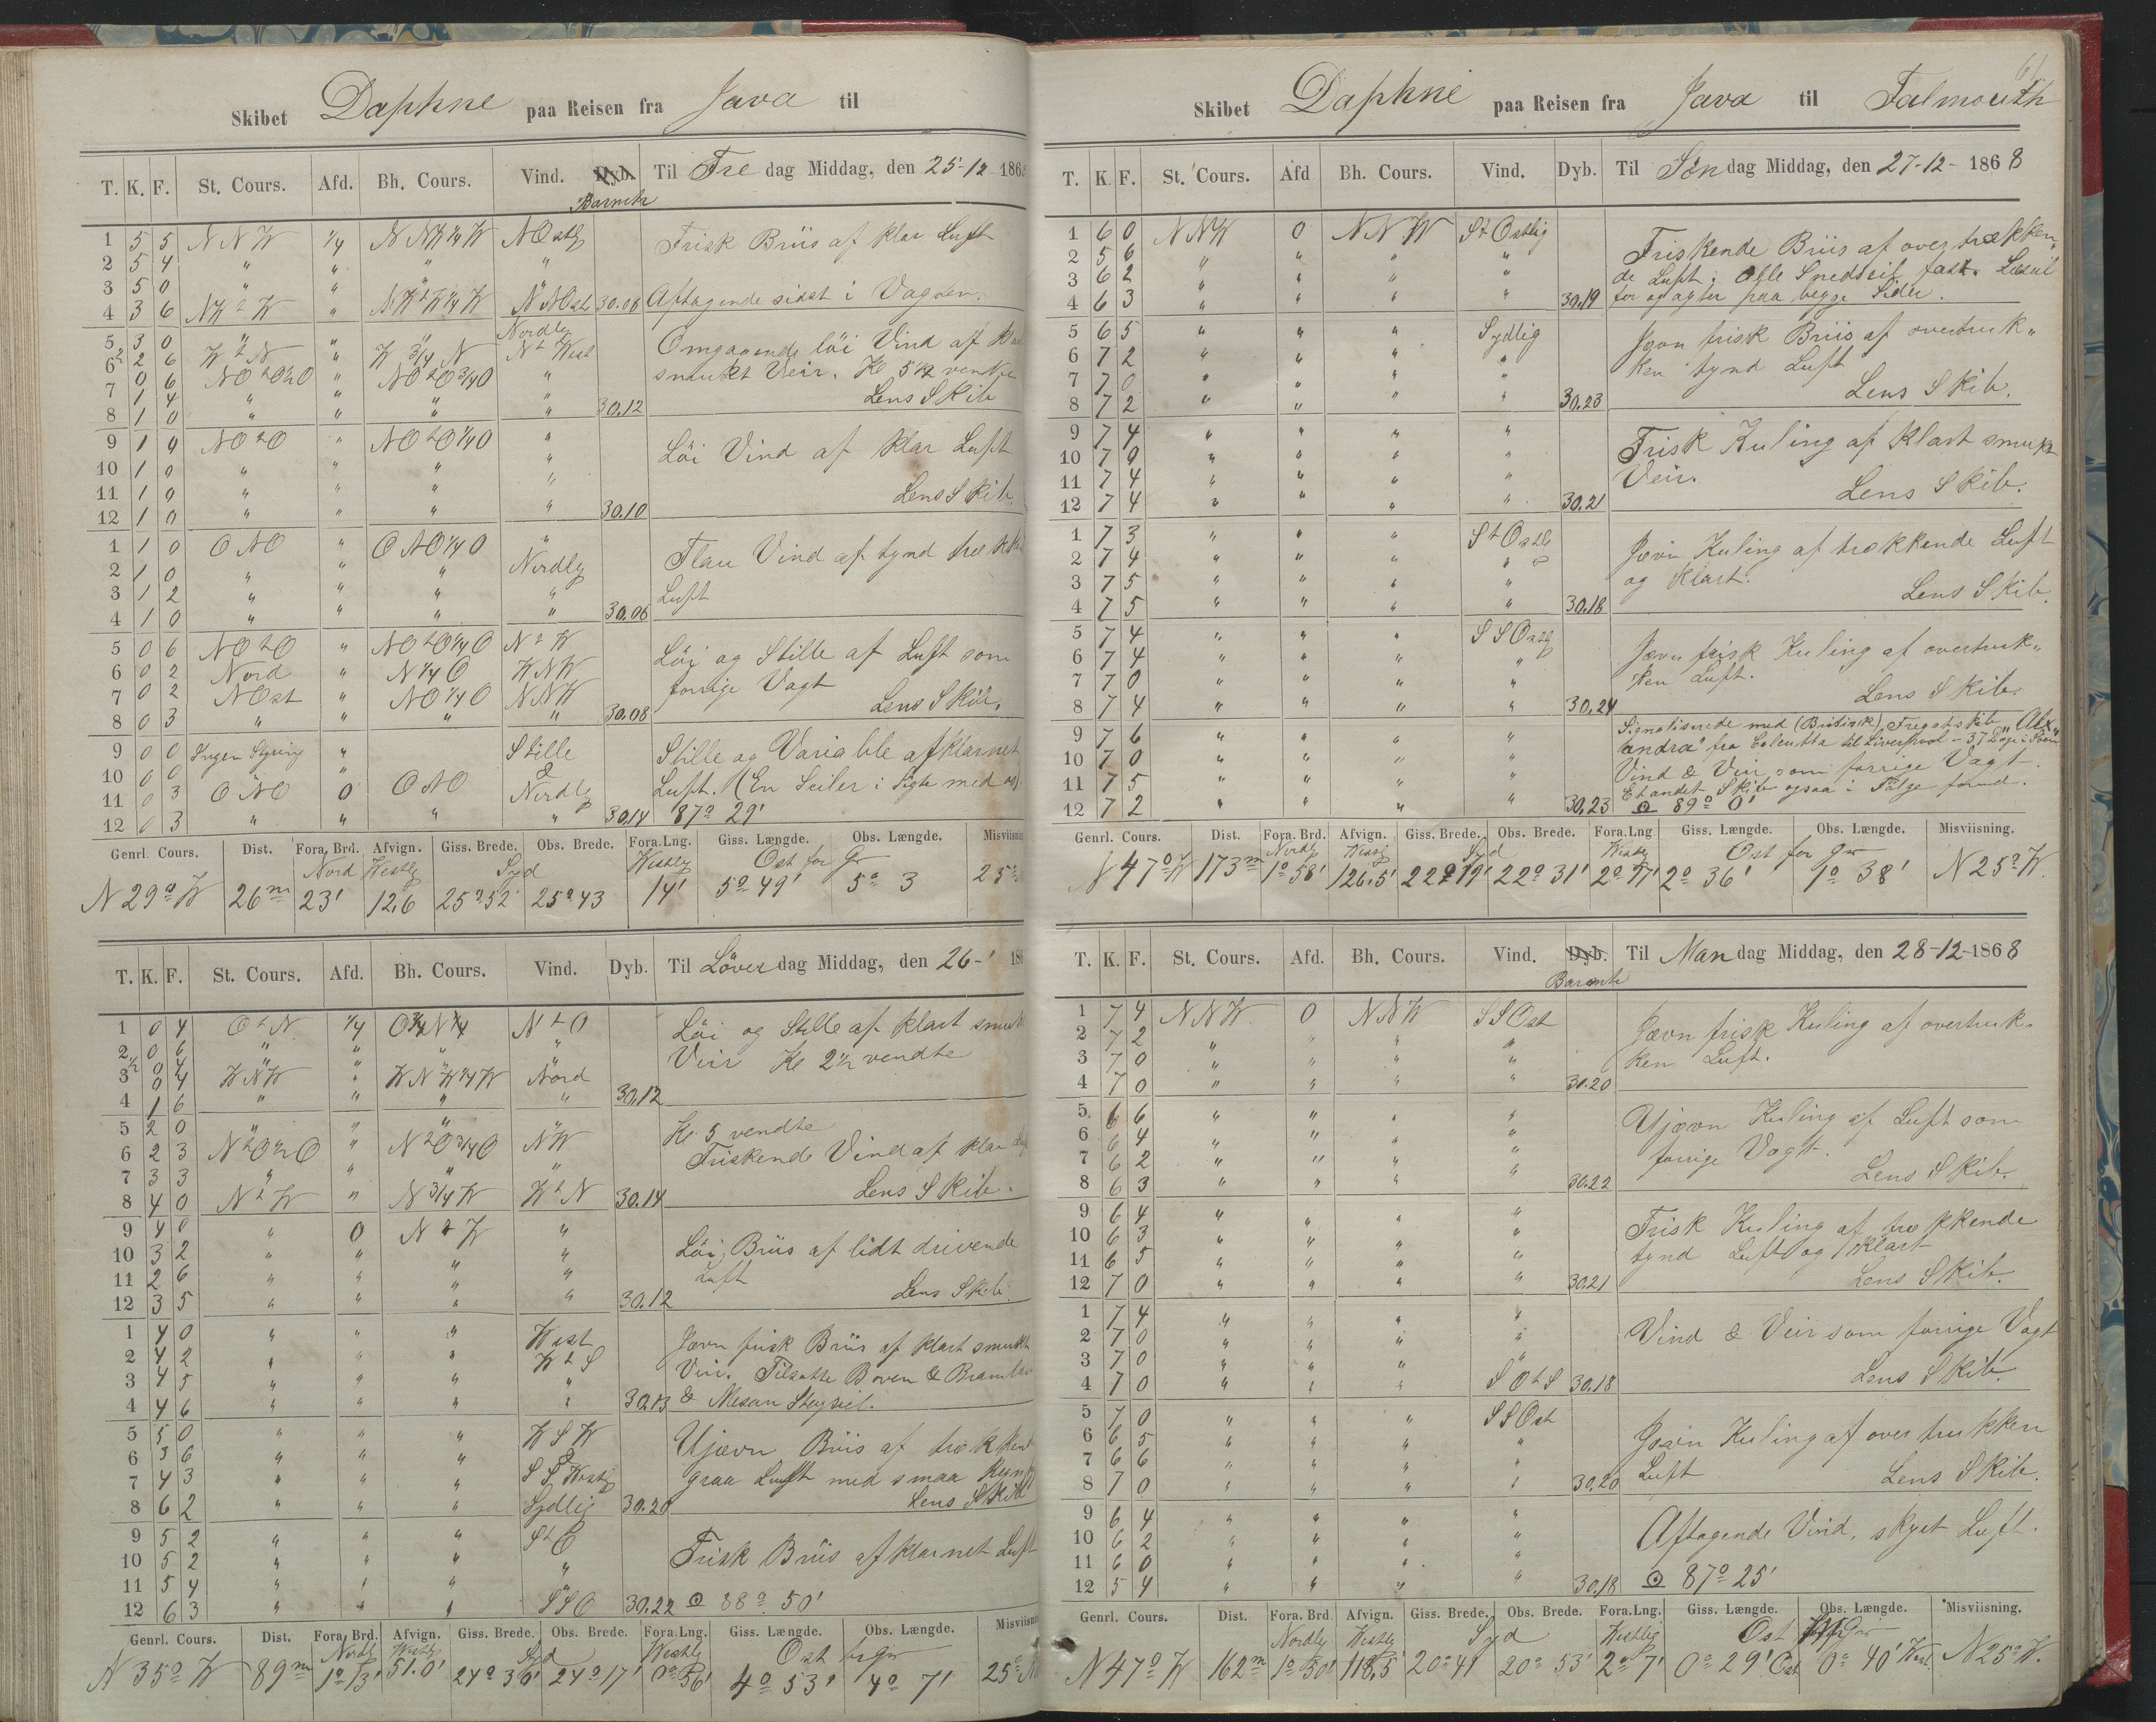 Skibet Daphne paa Reisen fra Java til
T. K. F. St. Cours. Afd. Bh. Cours. Vind. Dyb. Til Fre dag Middag, den 25-12-186
Barmtr
1 5 5 N N W 1/4 N NW 1/4 W NOstlg Frisk Briis af klar Luft
2 5 4 " " " "
3 5 0 " " " "
4 3 6 NW t W " NW t W 1/4 W NNOst 30.08 Aftagende sidst i Vagten.
5 3 0 " " " Nordlg Omgaaende löi Vind af
6 2 6 W t N " W 3/4 N N t West smukt Veir. Kl 5 1/2 vendte
1/2 0 6 NO t O 1/2 O " NO t O 3/4 O "
7 1 4 " " " " Lens Skib
8 1 0 " " " " 30.12
9 1 4 NO t O " NO t O 1/4 O " Löi Vind af klar Luft
10 1 0 " " " "
11 1 0 " " " " Lens Skib.
12 1 0 " " " " 30.10
1 1 0 O NO " O NO 1/4 O " Flau Vind af tynd
2 1 0 " " " Nordlg
3 1 2 " " " " Luft
4 1 0 " " " " 30.06
5 0 6 NO t O " NO t O 1/4 O N t W Löi og Stille af Luft som
6 0 2 Nord " N 1/4 O WNW
7 0 2 NOst " NO 1/4 O NNW forrige Vagt Lens Skib.
8 0 3 " " " " 30.08
9 0 0 Ingen Styring " Stille Stille og Variable af klarnet
10 0 0 " &
11 0 3 O NO 0 O NO Nordlg Luft. (En Seiler i Sigte med os)
12 0 3 " " " " 30.14 87° 29'
Genrl. Cours. Dist. Fora. Brd. Afvign. Giss. Brede. Obs. Brede. Fora.Lng. Giss. Længde. Obs. Længde. Misviisn
Nord Westlg Syd Westlg Ost for Gr
N 29° W 26m 23' 12,6 25° 52' 25° 43 14' 5° 49' 5° 3 25°
T. K. F. St. Cours. Afd. Bh. Cours. Vind. Dyb. Til Löver dag Middag, den 26-' 18
1 0 4 O t N 1/4 N t O Löi og Stille af klart
2 0 6 " " " "
1/2 0 4 Veir Kl 2 1/2 vendte
3 0 4 WNW " WNW 1/4 W Nord
4 1 6 " " " " 30.12
5 2 0 " " " " Kl. 5 vendte
6 2 3 N t O 1/2 O " N t O 3/4 O NW Friskende Vind af klar
7 3 3 " " " "
8 4 0 N t W " N 3/4 W W t N 30.14 Lens Skib.
9 4 0 " 0 N t W "
10 3 2 " " " " Löi Briis af lidt drivende
11 2 6 " " " " Luft
12 3 5 " " " " 30.12 Lens Skib.
1 4 0 " " " West Jævn frisk Briis af klart smukt
2 4 2 " " " W t S Veir. Tilsatte Boven &
3 4 5 " " " "
4 4 6 " " " " 30.13 & Mesan Stagseil.
5 5 0 " " " W S W Ujævn Briis af
6 3 6 " " " &
7 4 3 " " " S S Westlg graa Luft med smaa
8 6 2 " " " Sydlig 30.20 Lens Skib
9 5 2 " " " S t O
10 5 2 " " " " Frisk Briis af klarnet Luft
11 5 4 " " " "
12 6 3 " " " SSO 30.22 ⊙ 88° 50'
Genrl. Cours. Dist. Fora. Brd. Afvign. Giss. Brede. Obs. Brede. Fora.Lng. Giss. Længde. Obs. Længde. Misviisn
Nordlg Westlg Syd Westlg Ost for Gr
N 35° W 89m 1° 13' 51.0' 24° 30' 24° 17' 0° 56' 4° 53' 4° 7' 25°
61
Skibet Daphne paa Reisen fra Java til Falmouth
T. K. F. St. Cours. Afd Bh. Cours. Vind. Dyb. Til Søn dag Middag, den 27-12-1868
1 6 0 NNW 0 NNW S t Ostlig Friskende Briis af overtrækken„
2 5 6 " " " "
3 6 2 " " " " de Luft. Alle Snedseil fast. Læseil
4 6 3 " " " " 30.19 for og agter paa begge Sider.
5 6 5 " " " Sydlig Jævn frisk Briis af overtruk„
6 7 2 " " " " ken tynd Luft
7 7 0 " " " "
8 7 2 " " " " 30.23 Lens Skib.
9 7 4 " " " " Frisk Kuling af klart smukt
10 7 0 " " " "
11 7 4 " " " " Veir.
12 7 4 " " " " 30.21 Lens Skib.
1 7 3 " " " S t Ostlg Jævn Kuling af trækkende Luft
2 7 4 " " " "
3 7 5 " " " " og klart.
4 7 5 " " " " 30.18 Lens Skib.
5 7 4 " " " S S Ostlg Jævn frisk Kuling af overtruk„
6 7 4 " " " "
7 7 0 " " " " ken Luft.
8 7 4 " " " " 30.24 Lens Skib.
9 7 6 " " " " Signaliserede med (Britisk) Fregatskib „Alex„
andra" fra Calcutta til Liverpool - 37 Dage i Söen
10 7 0 " " " " Vind & Veir som forrige Vagt.
11 7 5 " " " " Et andet Skib ogsaa i Følge forud.
12 7 2 " " " " 30.23 ⊙ 89° 0'
Genrl. Cours. Dist. Fora. Brd. Afvign. Giss. Brede. Obs. Brede. Fora.Lng Giss. Længde. Obs. Længde. Misviisning.
Nordlg Westlg Syd Westlg Ost for Gr
N 47° W 173m 1° 58' 126,5' 22° 19' 22° 31' 2° 17' 2° 36' 1° 38' N 25° W.
T. K. F. St. Cours. Afd. Bh. Cours. Vind. Dyb. Til Man dag Middag, den 28-12-1868
Baromtr
1 7 4 NNW 0 NNW SSOst Jævn frisk Kuling af overtruk-
2 7 2 " " " "
3 7 0 " " " " ken Luft.
4 7 0 " " " " 30.20
5 6 6 " " " " Ujævn Kuling af Luft som
6 6 4 " " " "
7 6 2 " " " " forrige Vagt.
8 6 3 " " " " 30.22 Lens Skib.
9 6 4 " " " " Frisk Kuling af trækkende
10 6 3 " " " "
11 6 5 " " " " tynd Luft og klart
12 7 0 " " " " 30.21 Lens Skib.
1 7 4 " " " " Vind & Veir som forrige Vagt
2 7 0 " " " "
3 7 0 " " " "
4 7 0 " " " S O t S 30.18 Lens Skib.
5 7 0 " " " SSOst
6 6 5 " " " " Jævn Kuling af overtrukken
7 6 6 " " " "
8 7 0 " " " " 30.20 Luft Lens Skib.
9 6 4 " " " "
10 6 2 " " " " Aftagende Vind, skyet Luft.
11 6 0 " " " "
12 5 4 " " " " 30.18 ⊙ 87° 25'
Genrl. Cours. Dist. Fora. Brd. Afvign. Giss. Brede. Obs. Brede. Fora.Lng. Giss. Længde. Obs. Længde. Misviisning.
Nordlig Westlg Syd Westlig Ost Gr
N 47° W 162m 1° 50' 118,5' 20° 41 20° 53' 2° 7' 0° 29' Ost 0° 40' West. N 25° W.